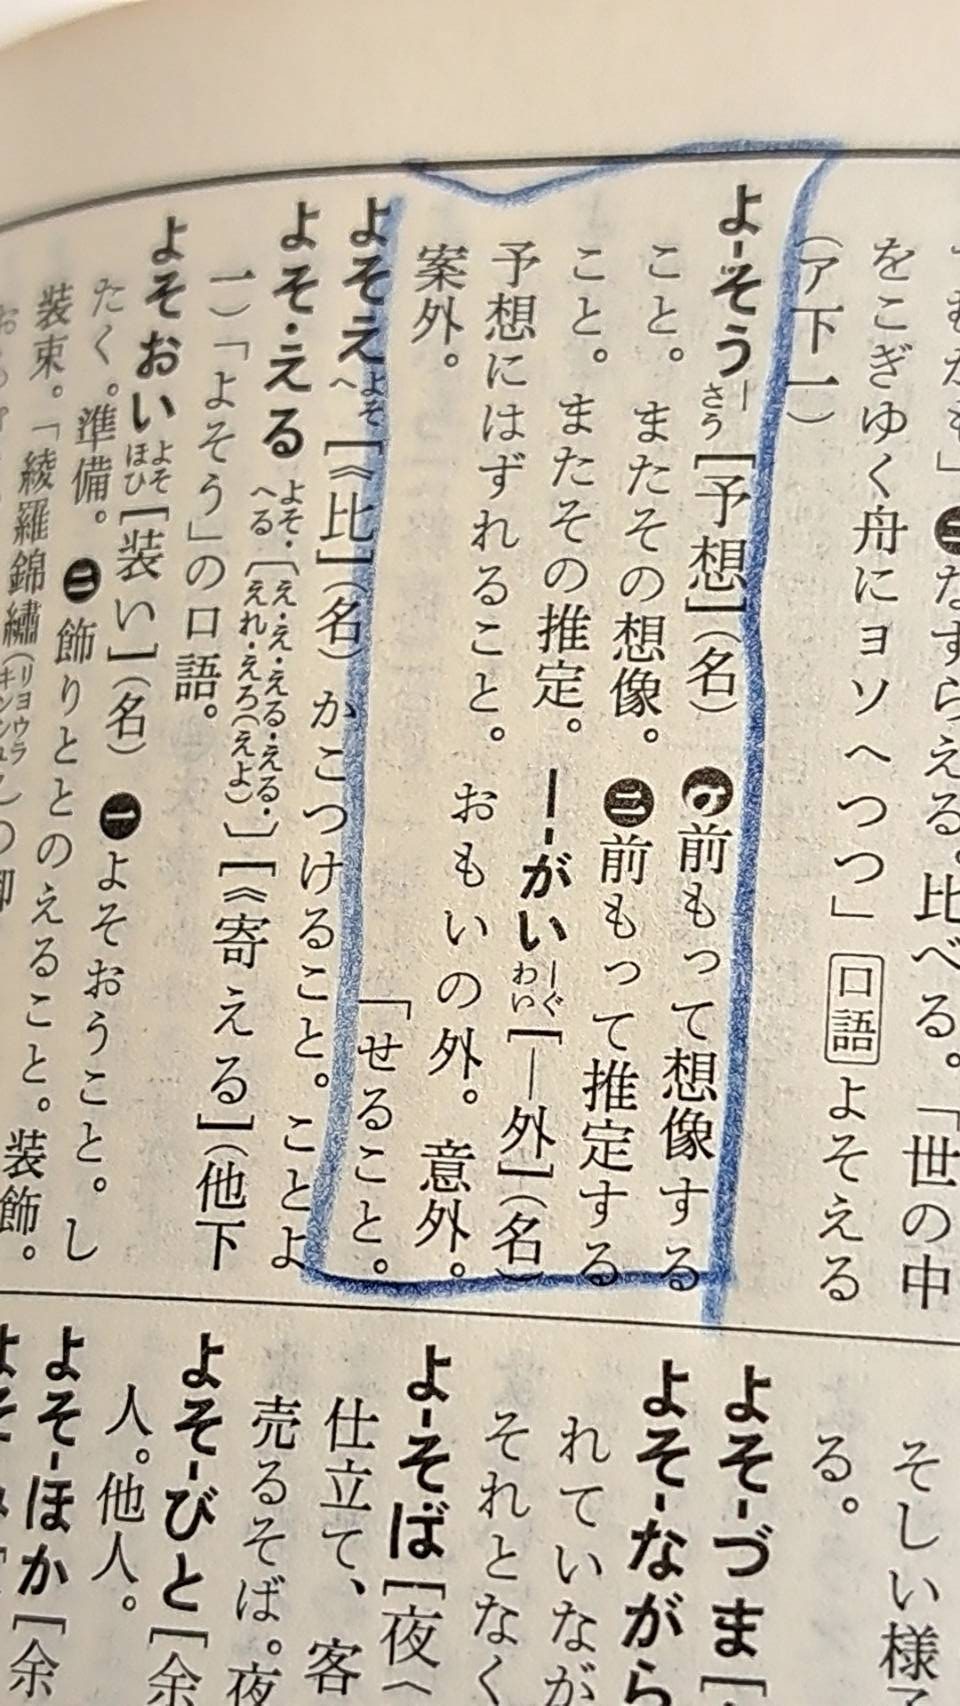 をこぎゆく舟にヨソへつつ」口語よそえる
(ア下一)
なずらえる。比べる。「世の中
よ-そう ―さう [予想](名) ㊀前もって想像する
こと。またその想像。 ㊁前もって推定する
こと。またその推定。 ―-がい ―ぐわい [―外](名)
予想にはずれること。おもいの外。意外。
案外。 「せること。
よそえ よそへ [《比](名) かこつけること。ことよ
よそ・える よそ・へる [え・え・える・える・えれ・えろ(えよ)][《寄える](他下
一)「よそう」の口語。
よそおい よそほひ [装い](名) ㊀よそおうこと。し
たく。準備。 ㊁飾りととのえること。装飾。
装束。「綾羅錦繡(リヨウラキンシユ
そしい様
る。
よそ-づま[
よそ-ながら
れていなが
それとなく
よ-そば[夜
仕立て、客
売るそば。夜
よそ-びと[余
人。他人。
よそ-ほか[余